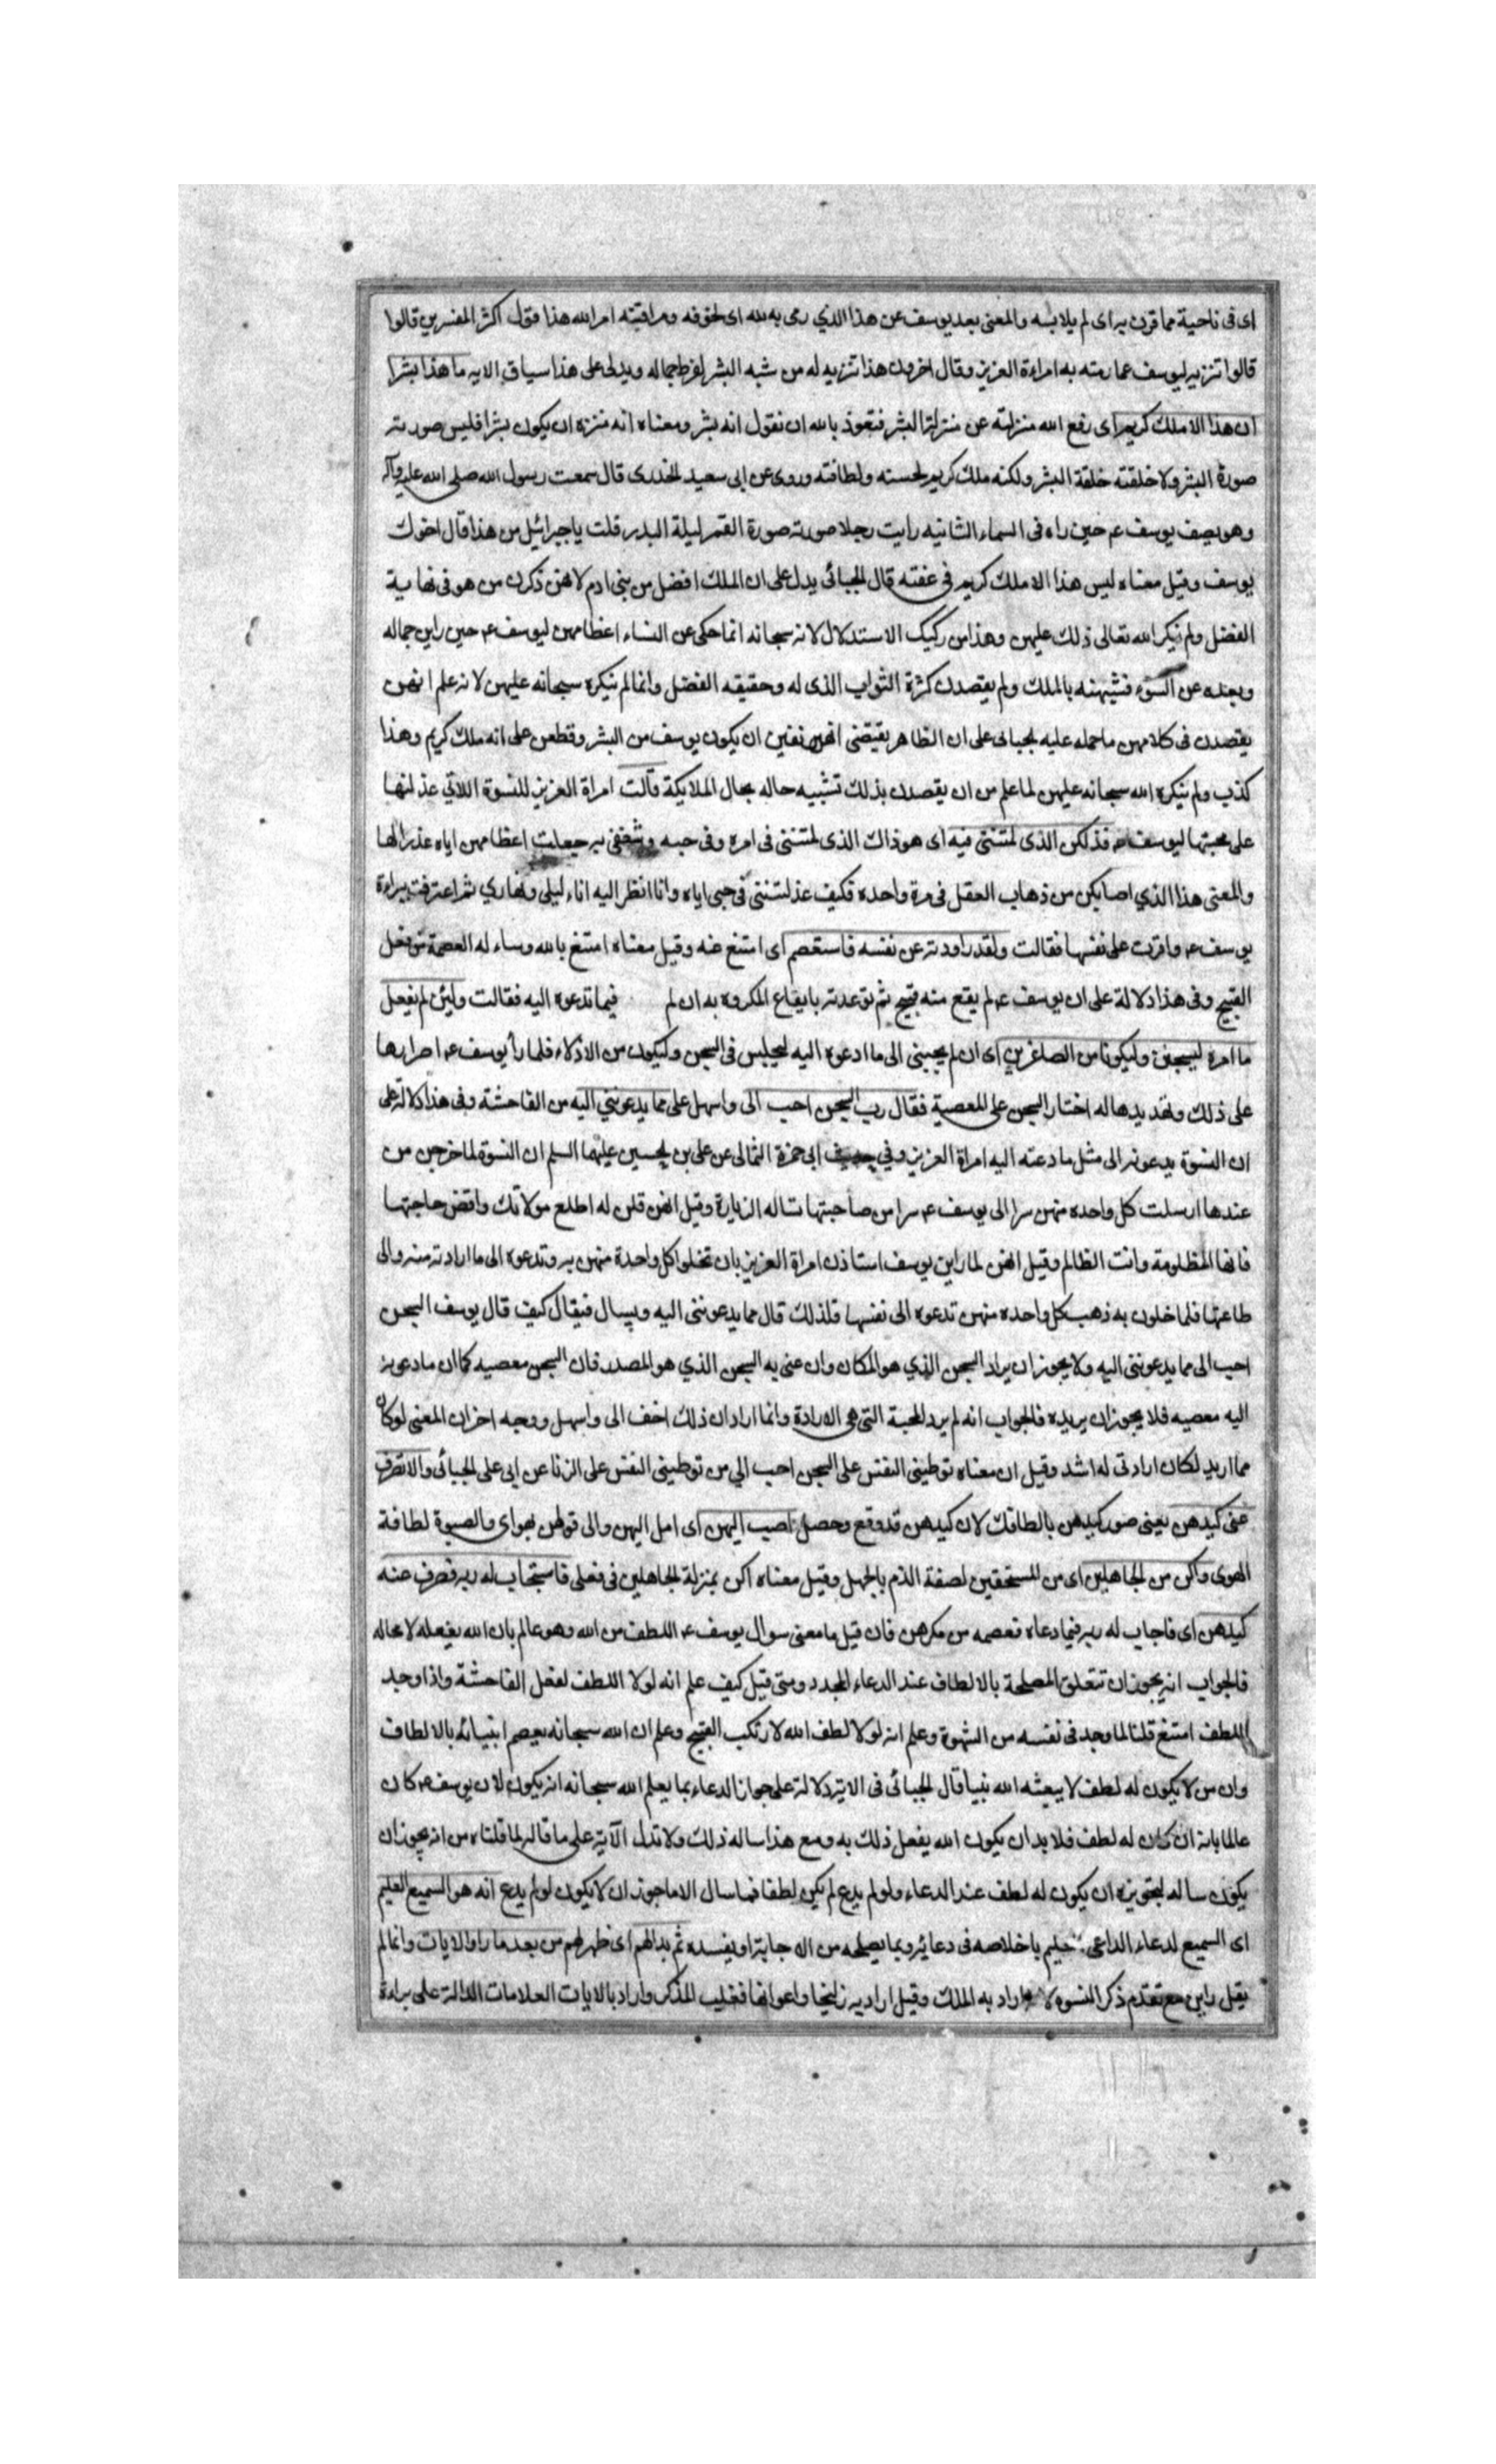 اى فى ناحية مما قرن به اى لم يلابسه والمعنى بعد يوسف عن هذا الذي رمى به لله اى لخوفه ومراقبته امر الله هذا قول اكثر المفسرين قالوا
قالوا تنزيه ليوسف عما رمته به امراءة العزيز وقال اخرون هذا تنزيه له من شبه البشر لفرط جماله ويدل على هذا سياق الايه ما هذا بشرا
ان هذا الا ملك كريم اى رفع الله منزلته عن منزلة البشر فنعوذ بالله ان نقول انه بشر ومعناه انه منزه ان يكون بشرا فليس صورته
صورة البشر ولا خلقته خلقة البشر ولكنه ملك كريم لحسنه ولطافته وروى عن ابى سعيد الخدرى قال سمعت رسول الله صلى الله عليه وآله
وهو يصف يوسف عم حين راه فى السماء الثانيه رايت رجلا صورته صورة القمر ليلة البدر قلت يا جبرائيل من هذا قال اخوك
يوسف وقيل معناه ليس هذا الا ملك كريم فى عفته قال الجبائى يدل على ان الملك افضل من بنى ادم لانهن ذكرن من هو فى نهاية
الفضل ولم ينكر الله تعالى ذلك عليهن وهذا من ركيك الاستدلال لانه سبحانه انما حكى عن النساء اعظامهن ليوسف عم حين راين جماله
وبعده عن السوء فشبهنه بالملك ولم يقصدن كثرة الثواب الذى له وحقيقه الفضل وانما لم ينكره سبحانه عليهن لانه علم انهن
يقصدن فى كلامهن ما حمله عليه الجبائى على ان الظاهر يقتضى انهن نفين ان يكون يوسف من البشر وقطعن على انه ملك كريم وهذا
كذب ولم ينكره الله سبحانه عليهن لما علم من ان يقصدن بذلك تشبيه حاله بحال الملايكة قالت امراة العزيز للنسوة اللاتي عذلنها
على محبتها ليوسف عم فذلكن الذى لمتننى فيه اى هو ذاك الذى لمتننى فى امره وفى حبه وشغفى به جعلت اعظامهن اياه عذرا لها
والمعنى هذا الذي اصابكن من ذهاب العقل فى مرة واحده فكيف عذلتننى فى حبى اياه وانا انظر اليه اناء ليلى ونهاري ثم اعترفت ببراءة
يوسف عم واقرت على نفسها فقالت ولقد راودته عن نفسه فاستعصم اى امتنع عنه وقيل معناه امتنع بالله وساء له العصمة من فعل
القبيح وفى هذا دلالة على ان يوسف عم لم يقع منه قبيح ثم توعدته بايقاع المكروه به ان لم فيما تدعوه اليه فقالت ولئن لم يفعل
ما امره ليسجنن وليكونا من الصاغرين اى ان لم يجبنى الى ما ادعوه اليه ليحبس فى السجن وليكون من الاذلاء فلما راى يوسف عم اصرارها
على ذلك وتهديدها له اختار السجن على المعصية فقال رب السجن احب الى واسهل على مما يدعوننى اليه من الفاحشة وفى هذا دلالة على
ان النسوة يدعونه الى مثل ما دعته اليه امراة العزيز وفي حديث ابى حمزة الثمالى عن على بن الحسين عليهما السلم ان النسوة لما خرجن من
عندها ارسلت كل واحده منهن سرا الى يوسف عم سرا من صاحبتها تساله الزيارة وقيل انهن قلن له اطلع مولاتك واقض حاجتها
فانها المظلومة وانت الظالم وقيل انهن لما راين يوسف استاذن امراة العزيز بان تخلوا كل واحدة منهن به وتدعوه الى ما ارادته منه والى
طاعتها فلما خلون به ذهب كل واحده منهن تدعوه الى نفسها فلذلك قال مما يدعوننى اليه ويسال فيقال كيف قال يوسف السجن
احب الى مما يدعوننى اليه ولا يجوز ان يراد السجن الذي هو المكان وان عنى به السجن الذي هو المصدر فان السجن معصيه كما ان ما دعونه
اليه معصيه فلا يجوز ان يريده فالجواب انه لم يرد المحبة التى هى الارادة وانما اراد ان ذلك اخف الى واسهل ووجه اخر ان المعنى لو كان
مما اريد لكان ارادتى له اشد وقيل ان معناه توطينى النفس على السجن احب الي من توطينى النفس على الزنا عن ابى على الجبائى والا تصرف
عنى كيدهن يعنى ضرر كيدهن بالطافك لان كيدهن قد وقع وحصل اصب اليهن اى امل اليهن والى قولهن بهواى والصبوة لطافة
الهوى واكن من الجاهلين اى من المستحقين لصفة الذم بالجهل وقيل معناه اكن بمنزلة الجاهلين فى فعلى فاستجاب له ربه فصرف عنه
كيدهن اى فاجاب له ربه فيما دعاه فعصمه من مكرهن فان قيل ما معنى سوال يوسف عم اللطف من الله وهو عالم بان الله يفعله لا محاله
فالجواب انه يجوز ان تتعلق المصلحة بالالطاف عند الدعاء المجدد ومتى قيل كيف علم انه لولا اللطف لفعل الفاحشة واذا وجد
اللطف امتنع قلنا لما وجد فى نفسه من الشهوة وعلم انه لولا لطف الله لارتكب القبيح وعلم ان الله سبحانه يعصم انبيائه بالالطاف
وان من لا يكون له لطف لا يبعثه الله نبيا قال الجبائى فى الاية دلالة على جواز الدعاء بما يعلم الله سبحانه انه يكون لان يوسف عم كان
عالما بانه ان كان له لطف فلا بد ان يكون الله يفعل ذلك به ومع هذا ساله ذلك ولا تدل الآية على ما قاله لما قلناه من انه يجوز ان
يكون ساله لتجويزه ان يكون له لطف عند الدعاء ولو لم يدع لم يكن لطفا فما سال الا ما جوز ان لا يكون لو لم يدع انه هو السميع العليم
اى السميع لدعاء الداعى عليم باخلاصه فى دعائه وبما يصلحه من الاجابة او يفسده ثم بدا لهم اى ظهر لهم من بعد ما راوا الايات وانما لم
يقل راين مع تقدم ذكر النسوه لانه اراد به الملك وقيل اراد به زليخا واعوانها فغلب المذكر واراد بالايات العلامات الدالة على براءة